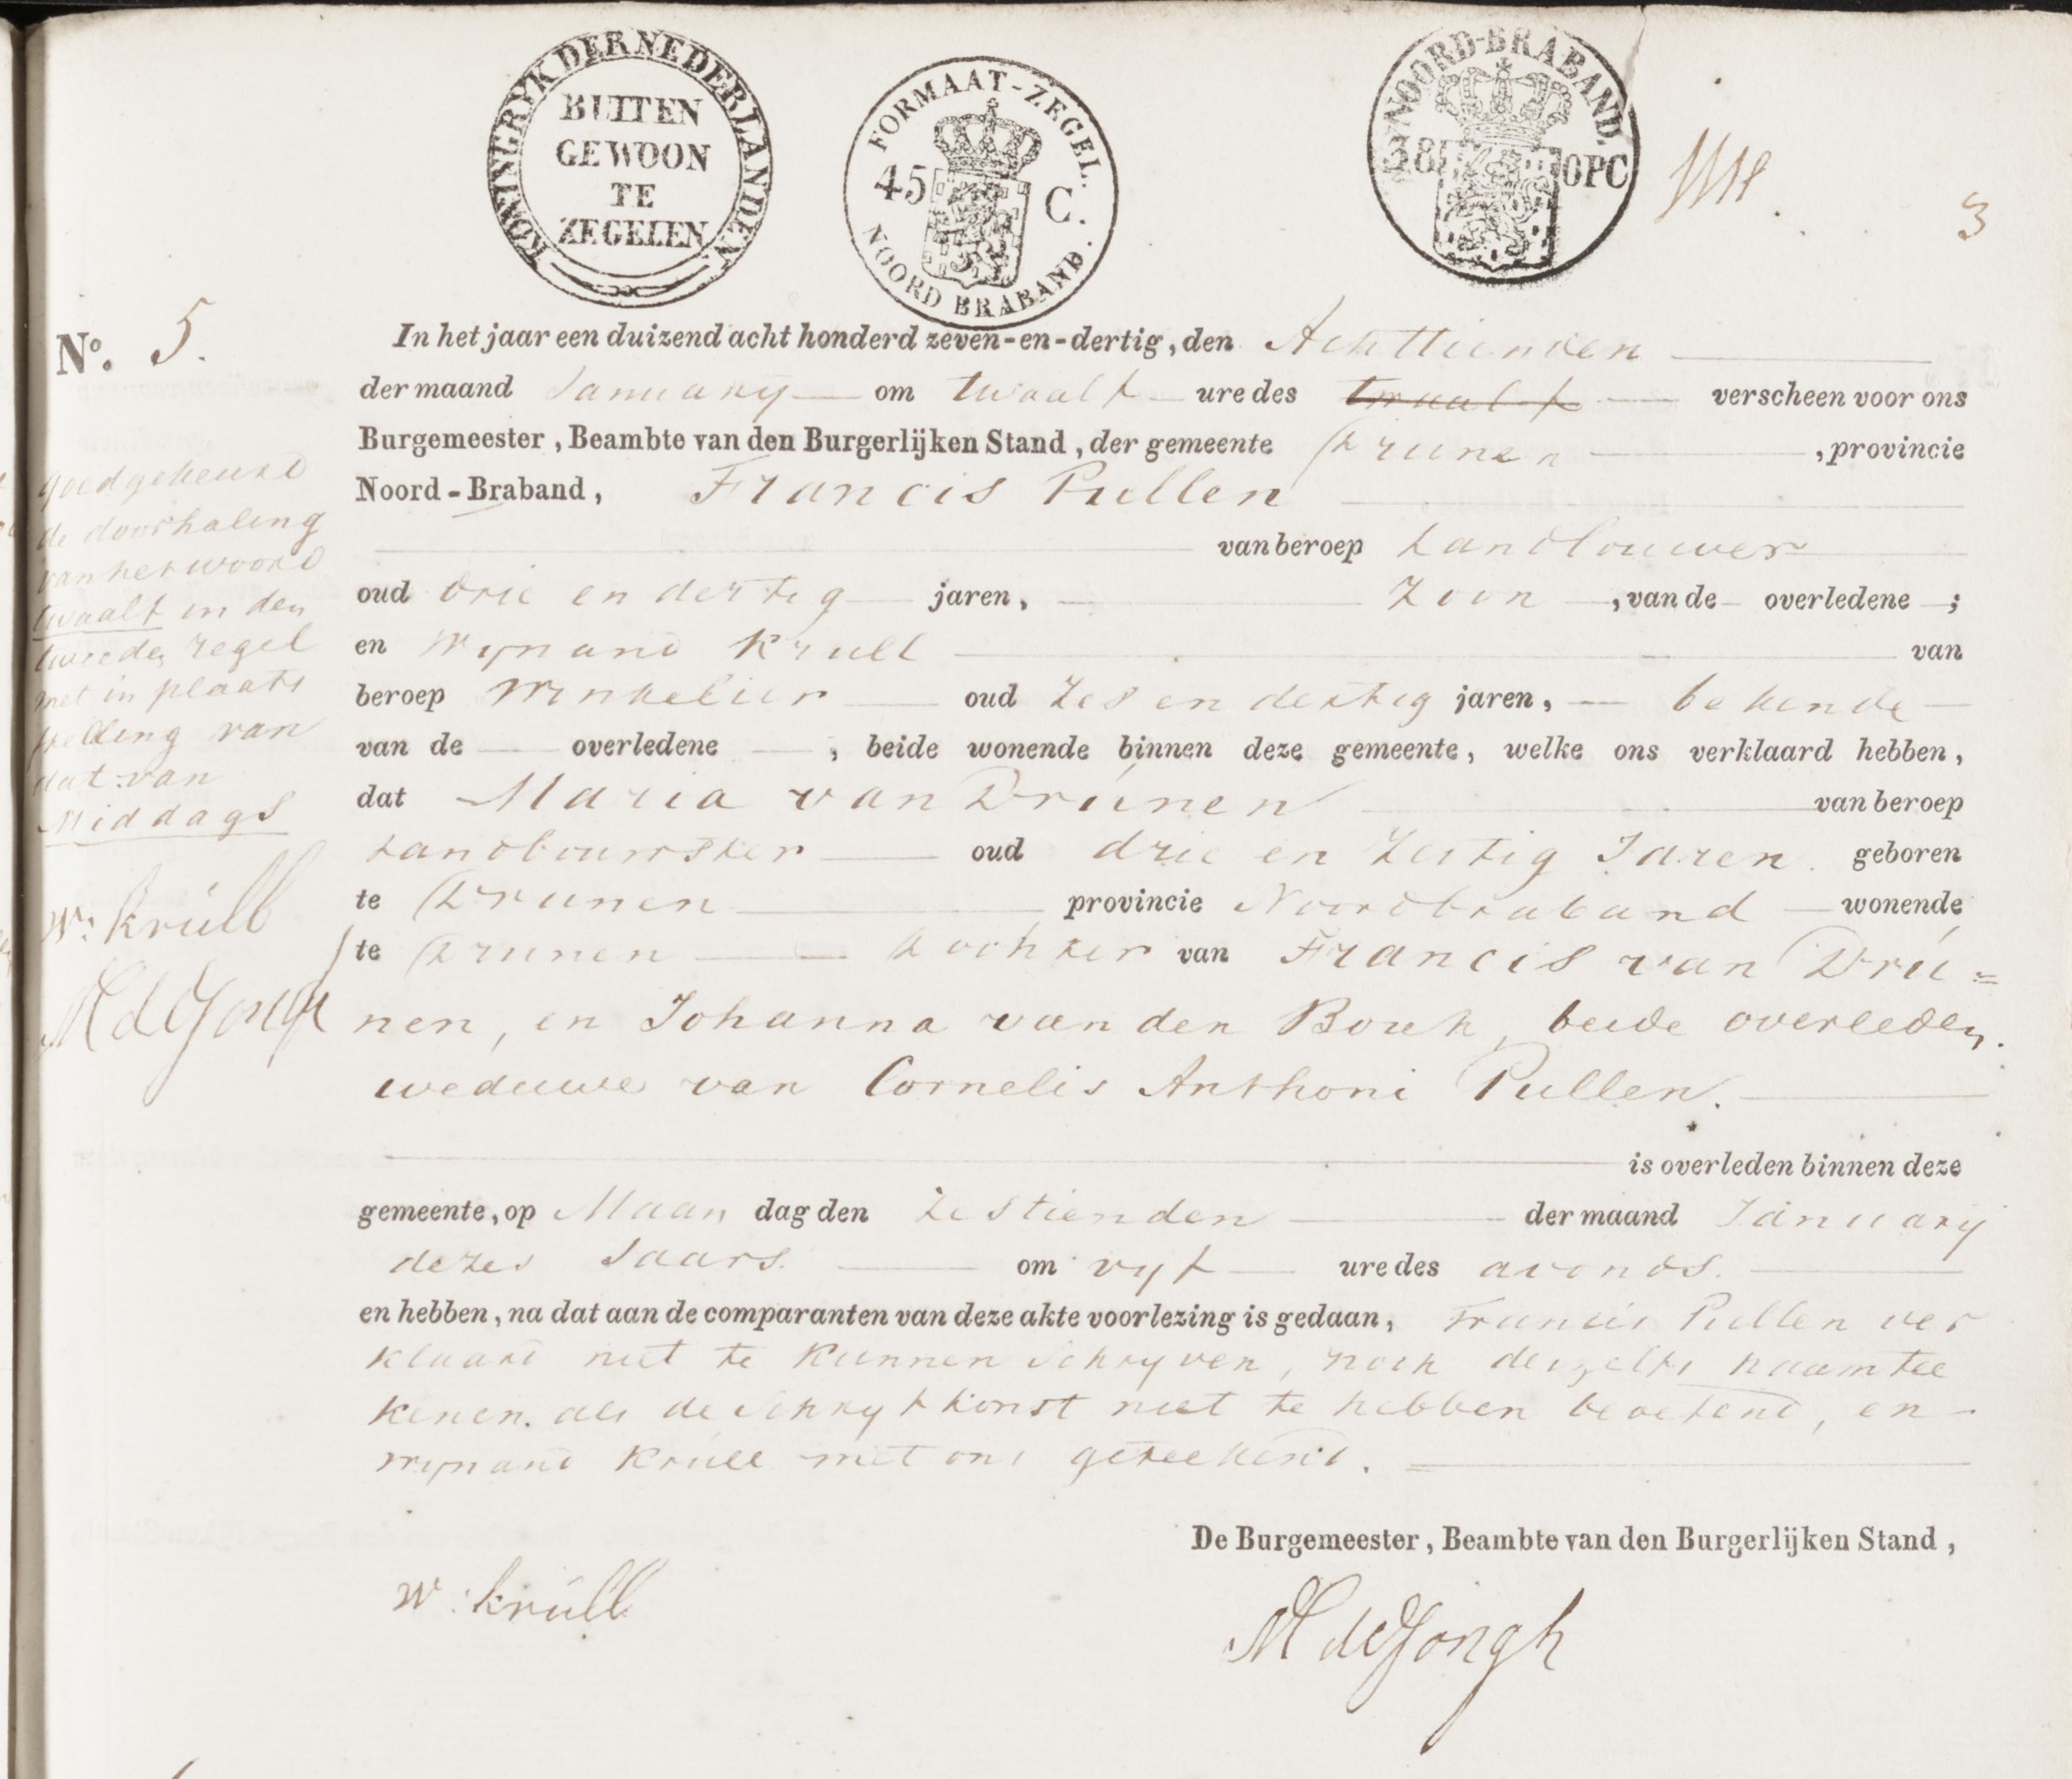 KONINGRYK DER NEDERLANDEN
BUITEN
GEWOON
TE
ZEGELEN
FORMAAT-ZEGEL.
45 C.
NOORD BRABAND.
NOORD-BRABAND.
38 OPC
3
No. 5.
In het jaar een duizend acht honderd zeven-en-dertig, den Achttienden
der maand January om twaalf ure des twaalf verscheen voor ons
Burgemeester, Beambte van den Burgerlijken Stand, der gemeente Drunen, provincie
Noord-Braband, Francis Pullen
van beroep Landbouwer
oud drie en dertig jaren, Zoon, van de overledene;
en Wynand Krull van
beroep Winkelier oud Zes en dertig jaren, bekende
van de overledene, beide wonende binnen deze gemeente, welke ons verklaard hebben,
dat Maria van Drúnen van beroep
Landbouwster oud drie en Zestig Jaren. geboren
te Drunen provincie Noordbraband wonende
te Drunen Dochter van Francis van Drú=
nen, en Johanna van den Bouk, beide overleden.
weduwe van Cornelis Anthoni Pullen.
is overleden binnen deze
gemeente, op Maan dag den Zestienden der maand January
dezes Jaars. om vyf ure des avonds.
en hebben, na dat aan de comparanten van deze akte voorlezing is gedaan, Francis Pullen ver
klaard niet te kunnen schryven, noch deszelfs naam tee
kenen. als de schryfkonst niet te hebben beoefend, en
Wynand Krull met ons geteekend.
De Burgemeester, Beambte van den Burgerlijken Stand,
W: Krúll
M de Jongh
goedgekeurd
de doorhaling
van het woord
twaalf in den
tweede regel
met in plaats
stelling van
dat van
Middags
W: Krúll
M de Jongh